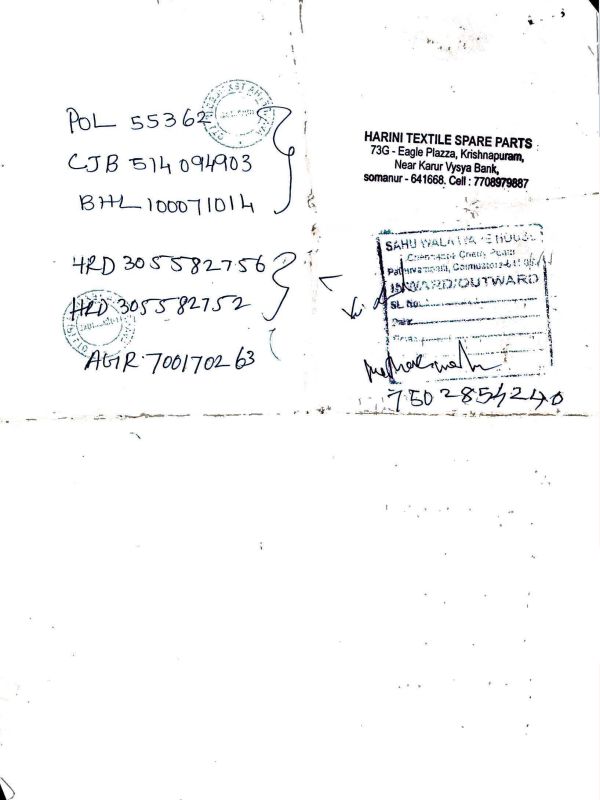 POL 55362
CJB 514 094903
BHL 100071014
HRD 305582756
HRD 305582752
AGIR 700170263
HARINI TEXTILE SPARE PARTS
73G - Eagle Plazza, Krishnapuram,
Near Karur Vysya Bank,
somanur - 641668. Cell : 7708979887
SAHUWALA WARE HOUSE
INWARD/OUTWARD
SL No.
Date
7502854240